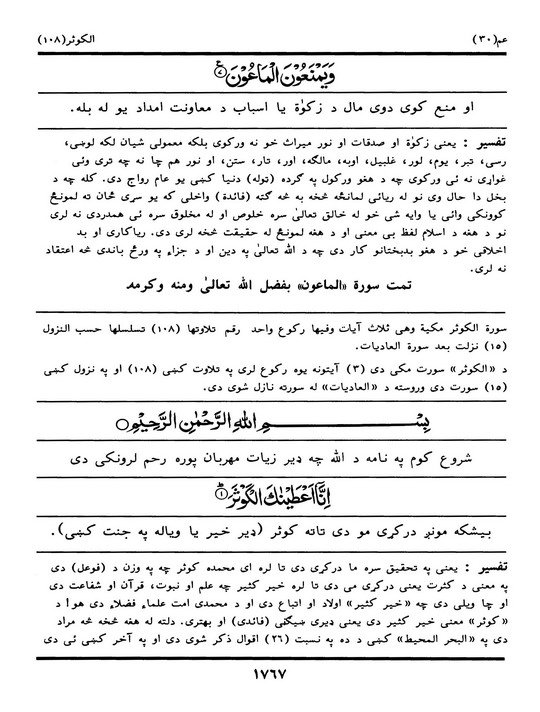 عم (۳۰)
الكوثر (۱۰۸)
وَيَمْنَعُونَ الْمَاعُونَ ﴿۷﴾
او منع کوی دوی مال د زکوٰة یا اسباب د معاونت امداد یو له بله.
تفسیر : یعنی زکوٰة او صدقات او نور میراث خو نه ورکوی بلکه معمولی شیان لکه لوښی،
رسی، تبر، یوم، لور، غلبیل، اوبه، مالګه، اور، تار، ستن، او نور هم چا ته چه تری وئی
غواړی نه ئی ورکوی چه د هغو ورکول په ګرده (توله) دنیا کښی یو عام رواج دی. کله چه د
بخل دا حال وی نو له ریائی لمانځه څخه به څه ګته (فائده) واخلی که یو سړی ځان ته لمونځ
کوونکی وائی یا وایه شی خو له خالق تعالیٰ سره خلوص او له مخلوق سره ئی همدردی نه لری
نو د هغه د اسلام لفظ بی معنی او د هغه لمونځ له حقیقت څخه لری دی. ریاکاری او بد
اخلاقی خو د هغو بدبختانو کار دی چه د الله تعالیٰ په دین او د جزاء په ورځ باندی څه اعتقاد
نه لری.
تمت سورة «الماعون» بفضل الله تعالیٰ ومنه وکرمه
سورة الكوثر مكية وهی ثلاث آیات وفیها رکوع واحد رقم تلاوتها (۱۰۸) تسلسلها حسب النزول
(۱۵) نزلت بعد سورة العادیات.
د «الکوثر» سورت مکی دی (۳) آیتونه یوه رکوع لری په تلاوت کښی (۱۰۸) او په نزول کښی
(۱۵) سورت دی وروسته د «العادیات» له سورته نازل شوی دی.
بِسْمِ اللهِ الرَّحْمٰنِ الرَّحِيْمِ
شروع کوم په نامه د الله چه ډیر زیات مهربان پوره رحم لرونکی دی
اِنَّا اَعْطَيْنٰكَ الْكَوْثَرَ ﴿۱﴾
بیشکه مونږ درکړی مو دی تاته کوثر (ډیر خیر یا ویاله په جنت کښی).
تفسیر : یعنی په تحقیق سره ما درکړی دی تا لره ای محمده کوثر چه په وزن د (فوعل) دی
په معنی د کثرت یعنی درکړی می دی تا لره خیر کثیر چه علم او نبوت، قرآن او شفاعت دی
او چا ویلی دی چه «خیر کثیر» اولاد او اتباع دی او د محمدی امت علماء فضلاء دی هو! د
«کوثر» معنی خیر کثیر دی یعنی ډیری ښیګڼی (فائدی) او بهتری. دلته له هغه څخه څه مراد
دی په «البحر المحیط» کښی د ده په نسبت (۲۶) اقوال ذکر شوی دی او په آخر کښی ئی دی
۱۷۶۷